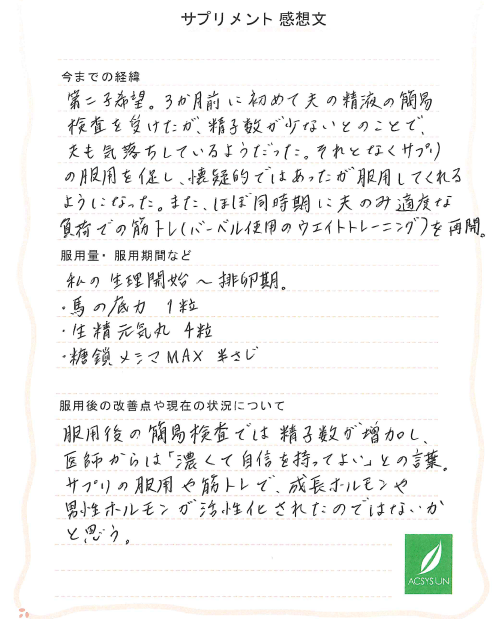 サプリメント 感想文
今までの経緯
第二子希望。3か月前に初めて夫の精液の簡易
検査を受けたが、精子数が少ないとのことで、
夫も気落ちしているようだった。それとなくサプリ
の服用を促し、懐疑的ではあったが服用してくれる
ようになった。また、ほぼ同時期に夫のみ適度な
負荷での筋トレ(バーベル使用のウエイトトレーニング)を再開。
服用量・服用期間など
私の生理開始〜排卵期。
・馬の底力 1粒
・生精元気丸 4粒
・糖鎖メシマMAX 半さじ
服用後の改善点や現在の状況について
服用後の簡易検査では精子数が増加し、
医師からは「濃くて自信を持ってよい」との言葉。
サプリの服用や筋トレで、成長ホルモンや
男性ホルモンが活性化されたのではないか
と思う。
ACSYSUN